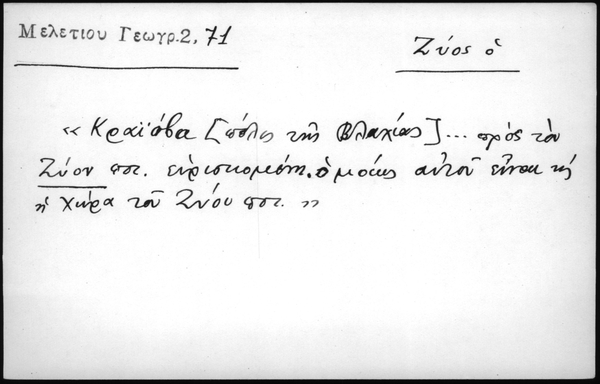 Μελετίου Γεωγρ. 2, 71
Ζύος ὁ
« Κραϊόβα [πόλις τῆς Βλαχίας] ... πρὸς τὸν
Ζύον ποτ. εὑρισκομένη. ὁμοίως αὐτοῦ εἶναι
ἡ χώρα τοῦ Ζύου ποτ. »